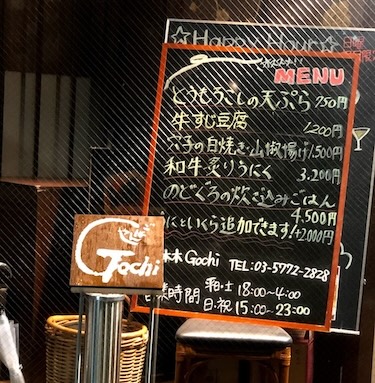 ☆Happy Hour☆
日、祝
MENU
とうもろこしの天ぷら 750円
牛すじ豆腐 1,200円
穴子の白焼き・山椒揚げ 1,500円
和牛炙りうにく 3,200円
のどぐろの炊き込みごはん 4,500円
うにといくら追加できます!+2,000円
木 Gochi TEL:03-5772-2828
営業時間 平日・土 18:00~4:00
日・祝 15:00~23:00
Gochi